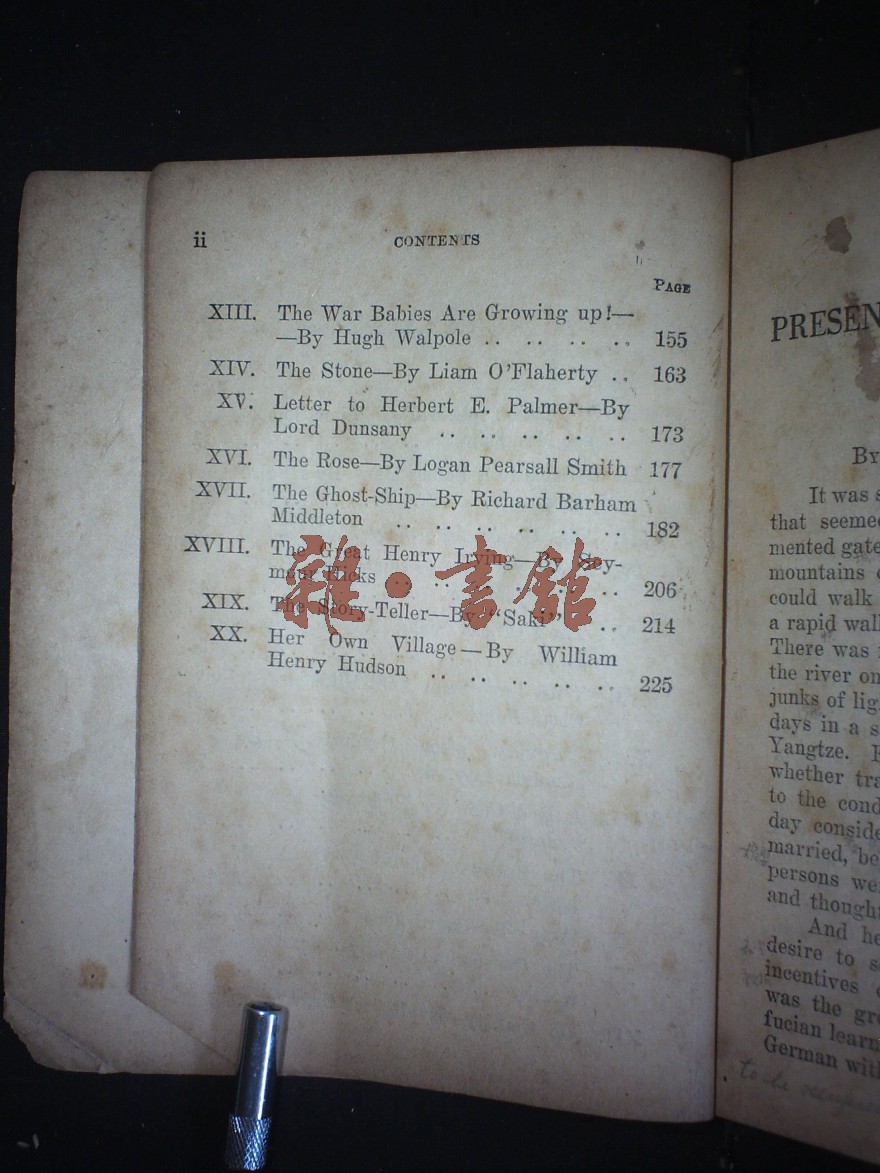 ii CONTENTS
PAGE
XIII. The War Babies Are Growing up!—
—By Hugh Walpole .. .. .. .. 155
XIV. The Stone—By Liam O'Flaherty .. 163
XV. Letter to Herbert E. Palmer—By
Lord Dunsany .. .. .. .. .. 173
XVI. The Rose—By Logan Pearsall Smith 177
XVII. The Ghost-Ship—By Richard Barham
Middleton .. .. .. .. .. .. 182
XVIII. The Great Henry Irving—By Sey-
mour Hicks .. .. .. .. .. .. 206
XIX. The Story-Teller—By "Saki" .. 214
XX. Her Own Village—By William
Henry Hudson .. .. .. .. .. 225
雜·書館
PRESEN
By
It was
that seemed
mented gate
mountains
could walk
a rapid wal
There was
the river on
junks of lig
days in a s
Yangtze.
whether tra
to the cond
day conside
married, be
persons we
and though
And he
desire to s
incentives
was the gr
fucian learn
German with
to be